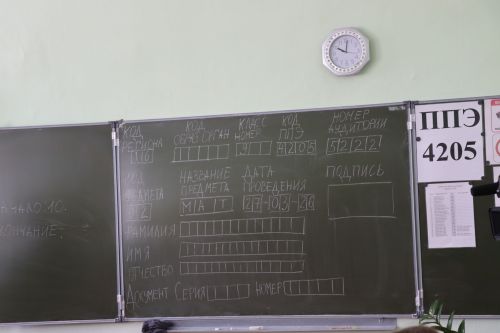 КОД КОД КЛАСС КОД НОМЕР
РЕГИОНА ОБР ОРГАН НОМЕР ППЭ АУДИТОРИИ
16 9 4205 5222
КОД НАЗВАНИЕ ДАТА ПОДПИСЬ
ПРЕДМЕТА ПРЕДМЕТА ПРОВЕДЕНИЯ
02 МАТ 27-03-26
ФАМИЛИЯ
ИМЯ
ОТЧЕСТВО
ДОКУМЕНТ СЕРИЯ НОМЕР
НАЧАЛО:10-
ОКОНЧАНИЕ:
ППЭ
4205